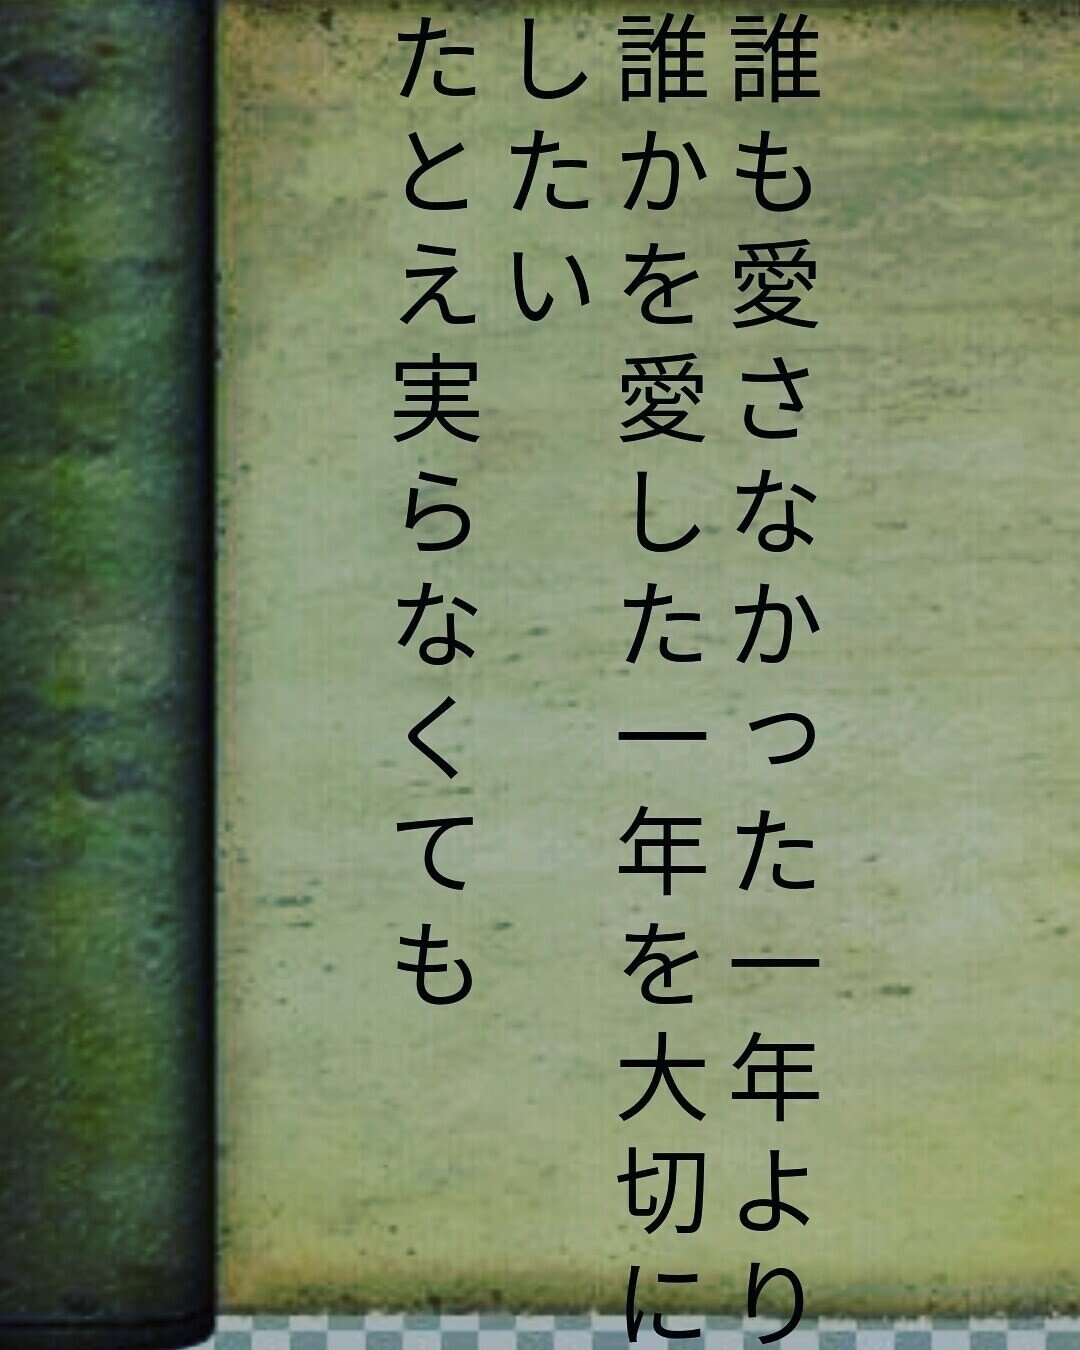 誰も愛さなかった一年より
誰かを愛した一年を大切に
したい
たとえ実らなくても